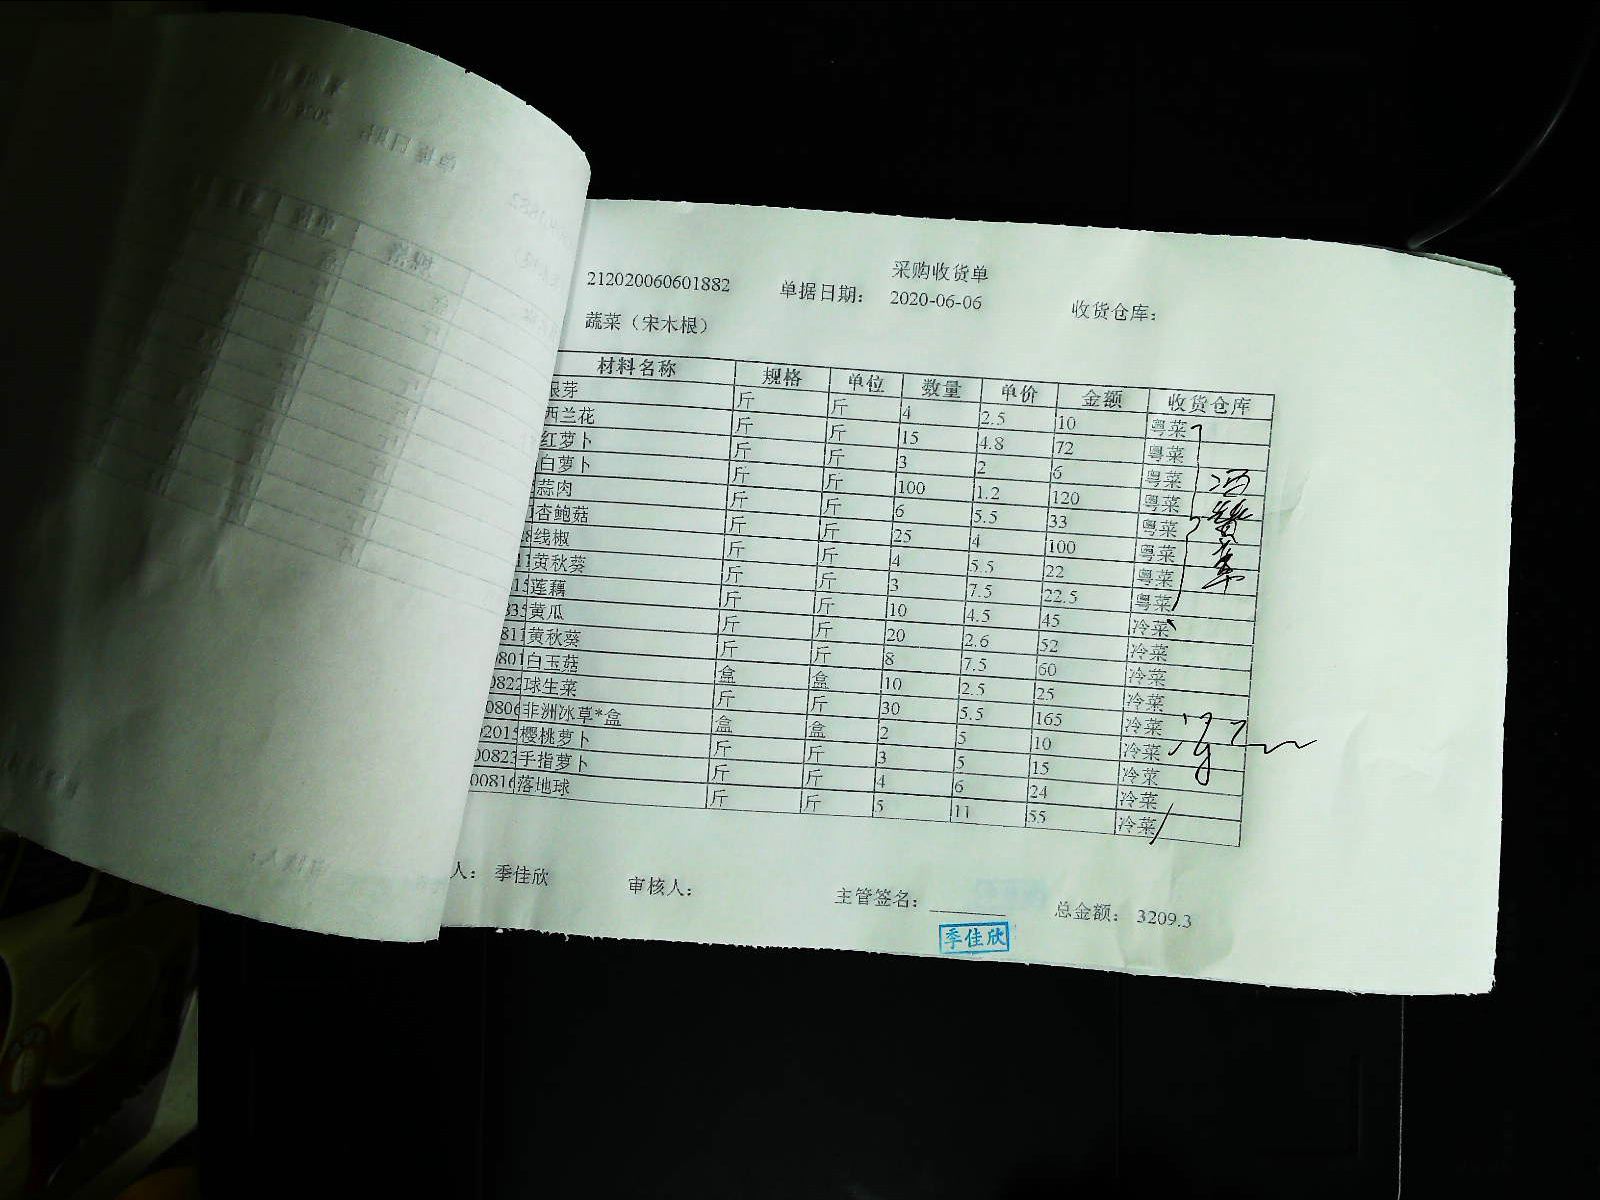 采购收货单
212020060601882 单据日期： 2020-06-06 收货仓库：
蔬菜（宋木根）
材料名称 规格 单位 数量 单价 金额 收货仓库
银芽 斤 斤 4 2.5 10 粤菜
西兰花 斤 斤 15 4.8 72 粤菜
红萝卜 斤 斤 3 2 6 粤菜
白萝卜 斤 斤 100 1.2 120 粤菜
蒜肉 斤 斤 6 5.5 33 粤菜
杏鲍菇 斤 斤 25 4 100 粤菜
线椒 斤 斤 4 5.5 22 粤菜
黄秋葵 斤 斤 3 7.5 22.5 粤菜
莲藕 斤 斤 10 4.5 45 冷菜
黄瓜 斤 斤 20 2.6 52 冷菜
黄秋葵 斤 斤 8 7.5 60 冷菜
白玉菇 盒 盒 10 2.5 25 冷菜
球生菜 斤 斤 30 5.5 165 冷菜
非洲冰草*盒 盒 盒 2 5 10 冷菜
樱桃萝卜 斤 斤 3 5 15 冷菜
手指萝卜 斤 斤 4 6 24 冷菜
落地球 斤 斤 5 11 55 冷菜
人： 季佳欣 审核人： 主管签名： 总金额： 3209.3
季佳欣